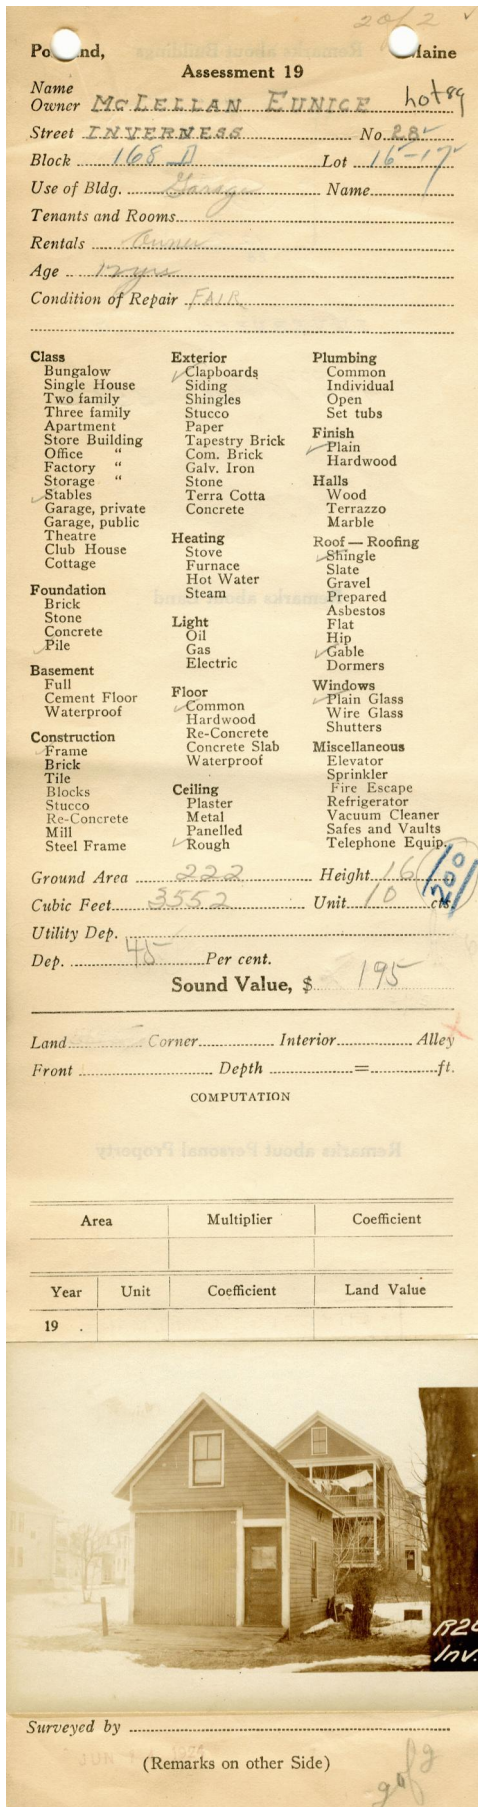 2 of 2 ✓
Po nd, Maine
Assessment 19
Name
Owner McLELLAN EUNICE hot 89
Street INVERNESS No. 28
Block 168 D Lot 16-17
Use of Bldg. Garage Name
Tenants and Rooms
Rentals Owner
Age 12 yrs
Condition of Repair FAIR
Class
Bungalow
Single House
Two family
Three family
Apartment
Store Building
Office "
Factory "
Storage "
✓ Stables
Garage, private
Garage, public
Theatre
Club House
Cottage
Foundation
Brick
Stone
Concrete
✓ Pile
Basement
Full
Cement Floor
Waterproof
Construction
✓ Frame
Brick
Tile
Blocks
Stucco
Re-Concrete
Mill
Steel Frame
Exterior
✓ Clapboards
Siding
Shingles
Stucco
Paper
Tapestry Brick
Com. Brick
Galv. Iron
Stone
Terra Cotta
Concrete
Heating
Stove
Furnace
Hot Water
Steam
Light
Oil
Gas
Electric
Floor
✓ Common
Hardwood
Re-Concrete
Concrete Slab
Waterproof
Ceiling
Plaster
Metal
Panelled
✓ Rough
Plumbing
Common
Individual
Open
Set tubs
Finish
✓ Plain
Hardwood
Halls
Wood
Terrazzo
Marble
Roof — Roofing
✓ Shingle
Slate
Gravel
Prepared
Asbestos
Flat
Hip
✓ Gable
Dormers
Windows
✓ Plain Glass
Wire Glass
Shutters
Miscellaneous
Elevator
Sprinkler
Fire Escape
Refrigerator
Vacuum Cleaner
Safes and Vaults
Telephone Equip.
Ground Area 222 Height 16
200
Cubic Feet 3552 Unit 10 cts.
Utility Dep.
Dep. 45 Per cent.
Sound Value, $ 195
Land Corner Interior Alley
Front Depth = ft.
COMPUTATION
Area Multiplier Coefficient
Year Unit Coefficient Land Value
19 .
R2
Inv.
Surveyed by
(Remarks on other Side)